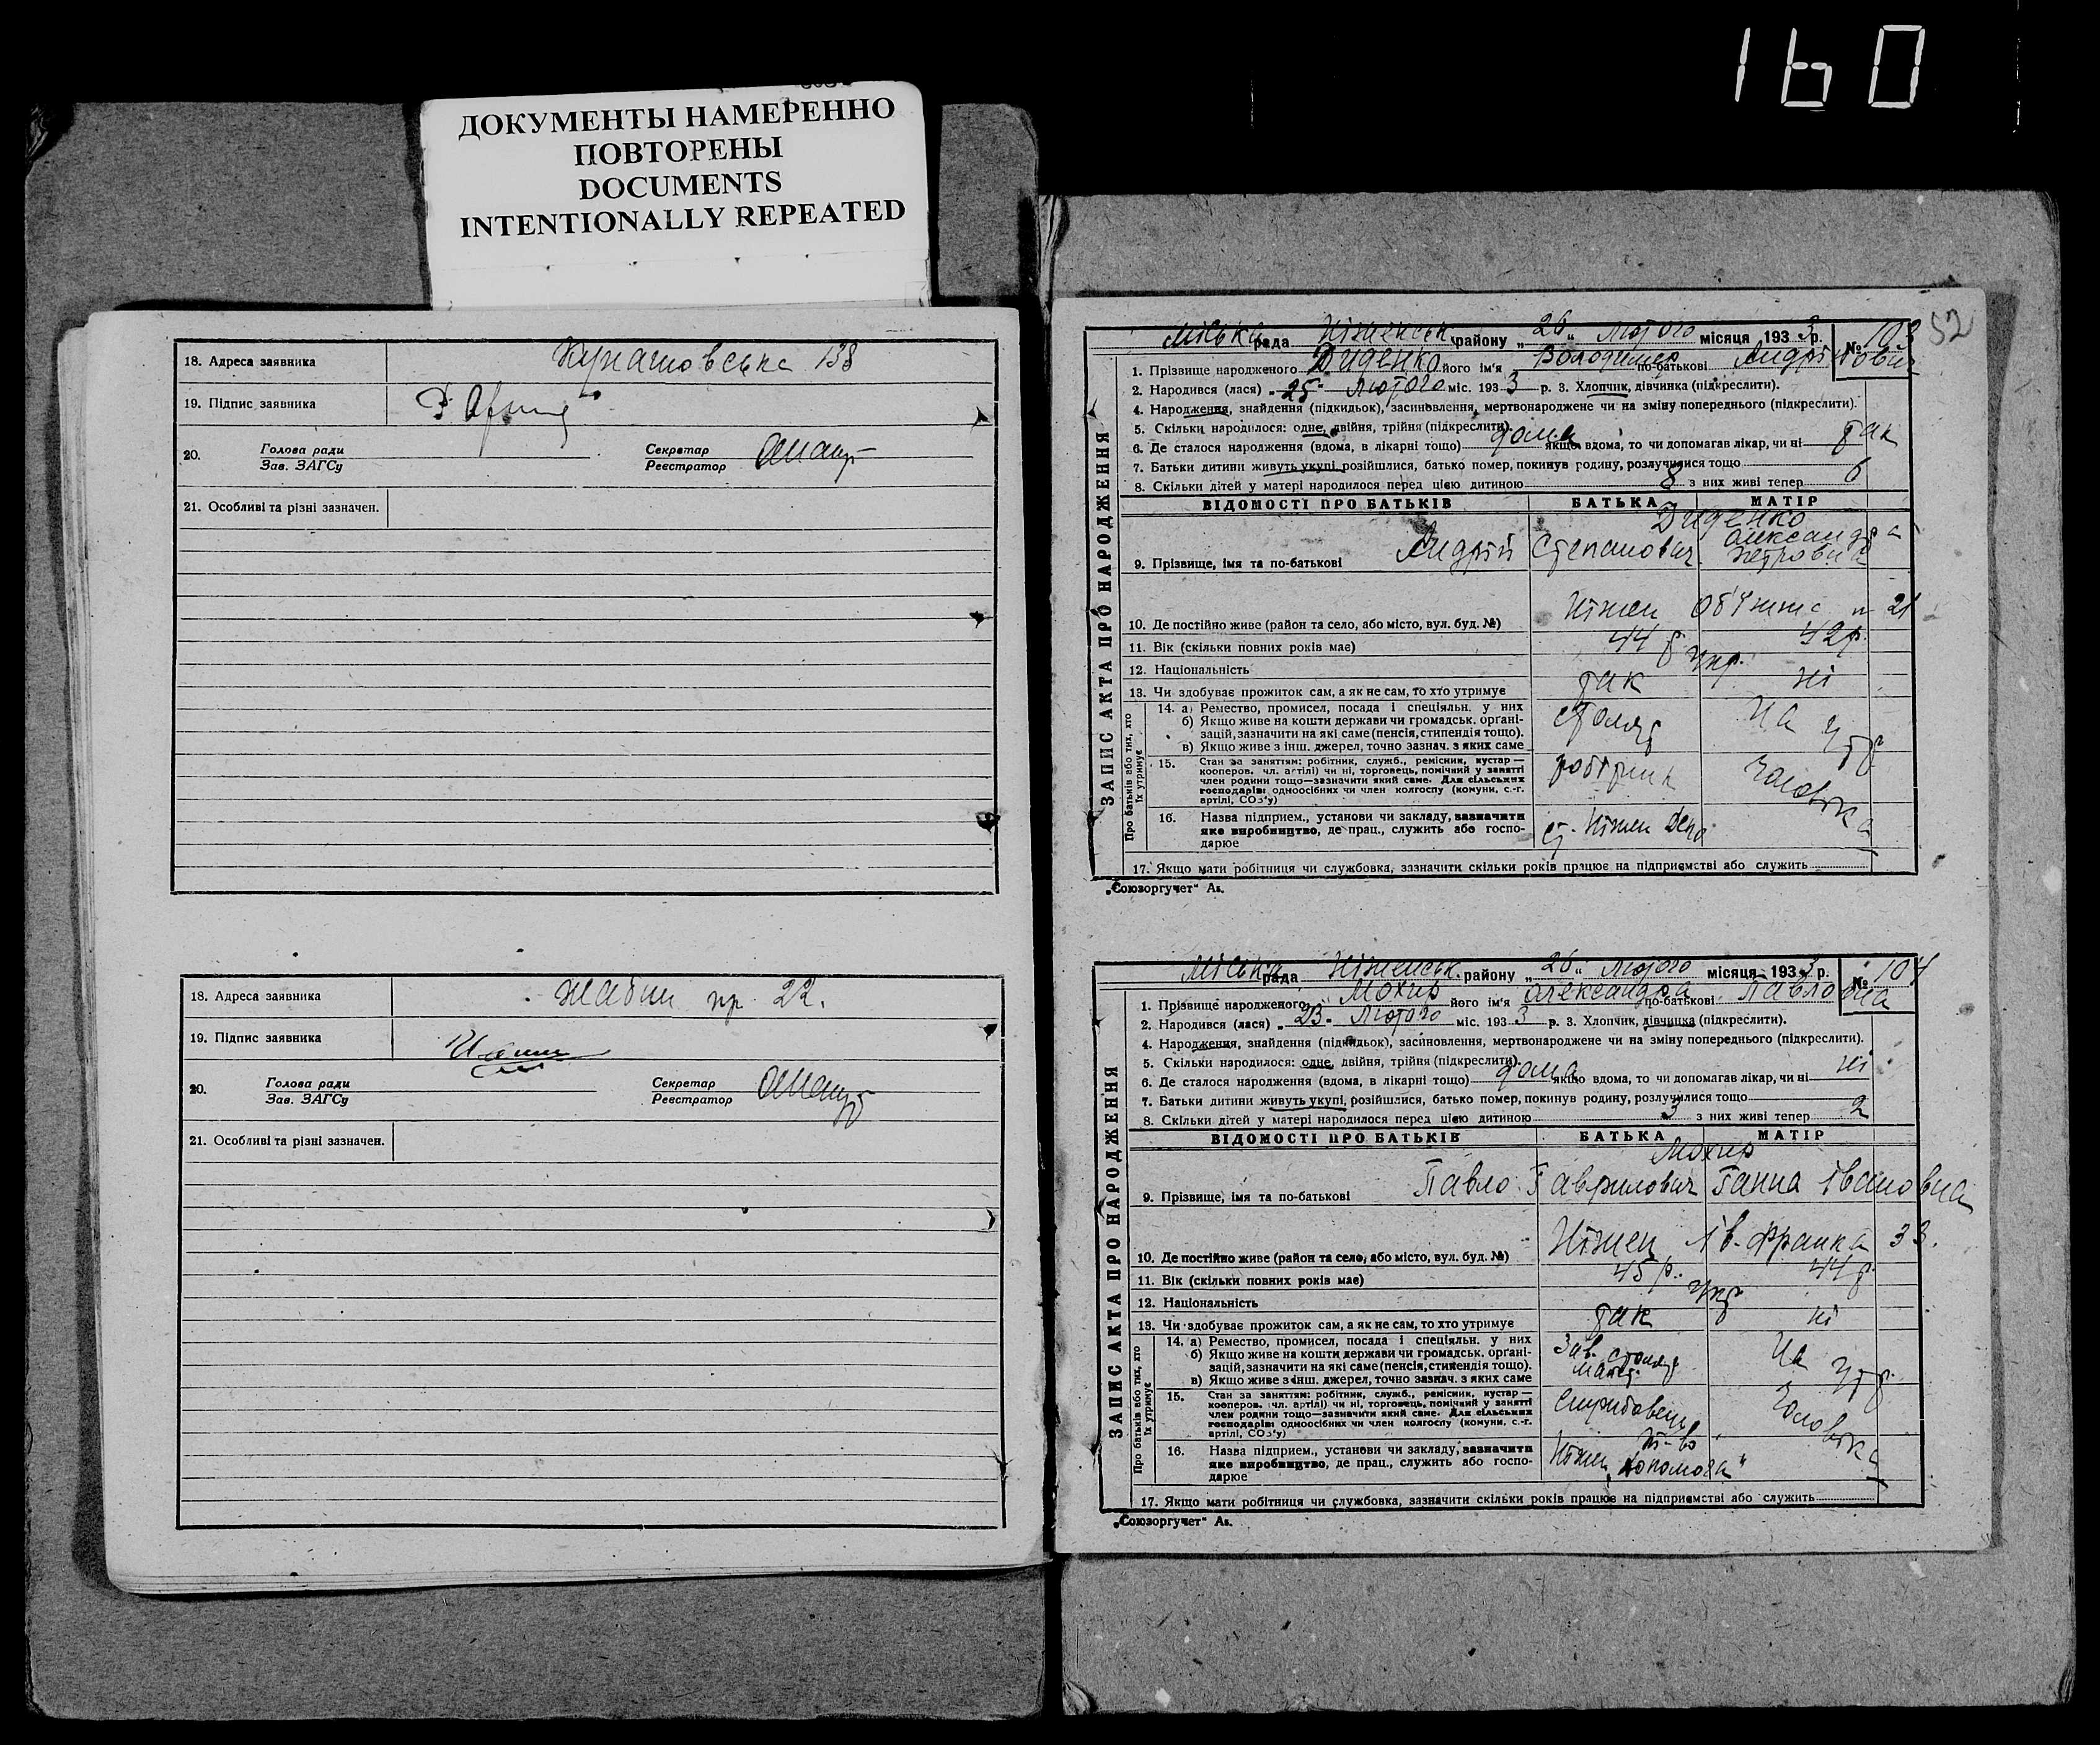 160
ДОКУМЕНТЫ НАМЕРЕННО
ПОВТОРЕНЫ
DOCUMENTS
INTENTIONALLY REPEATED
18. Адреса заявника 138
19. Підпис заявника
20. Голова ради Секретар
Зав. ЗАГСу Реєстратор
21. Особливі та різні зазначен.
18. Адреса заявника пр. 22.
19. Підпис заявника
20. Голова ради Секретар
Зав. ЗАГСу Реєстратор
21. Особливі та різні зазначен.
52
Міська рада Ніженськ. району „26“ Лютого місяця 1933 р. № 103
ЗАПИС АКТА ПРО НАРОДЖЕННЯ
1. Прізвище народженого Диденко його ім'я Володимер по-батькові Андрійович
2. Народився (лася) „25“ Лютого міс. 1933 р. 3. Хлопчик, дівчинка (підкреслити).
4. Народження, знайдення (підкидьок), засиновлення, мертвонароджене чи на зміну попереднього (підкреслити).
5. Скільки народилося: одне, двійня, трійня (підкреслити).
6. Де сталося народження (вдома, в лікарні тощо) дома якщо вдома, то чи допомагав лікар, чи ні так
7. Батьки дитини живуть укупі, розійшлися, батько помер, покинув родину, розлучилися тощо
8. Скільки дітей у матері народилося перед цією дитиною 8 з них живі тепер 6
ВІДОМОСТІ ПРО БАТЬКІВ БАТЬКА МАТІР
Диденко
9. Прізвище, імя та по-батькові Андрій Степанович Олександра Петровна
10. Де постійно живе (район та село, або місто, вул. буд. №) Ніжен 21
11. Вік (скільки повних років має) 44 р. 42 р.
12. Національність Укр.
13. Чи здобуває прожиток сам, а як не сам, то хто утримує так ні
Про батьків або тих, хто їх утримує
14. а) Ремество, промисел, посада і спеціяльн. у них столяр На утр.
б) Якщо живе на кошти держави чи громадськ. органі-
зацій, зазначити на які саме (пенсія, стипендія тощо).
в) Якщо живе з інш. джерел, точно зазнач. з яких саме
15. Стан за заняттям: робітник, служб., ремісник, кустар —
кооперов. чл. артілі) чи ні, торговець, помічний у занятті
член родини тощо—зазначити який саме. Для сільських
господарів: одноосібних чи член колгоспу (комуни, с.-г.
артілі, СОЗ'у) робітник Чоловіка
16. Назва підприєм., установи чи закладу, зазначити
яке виробництво, де прац., служить або госпо-
дарює ст. Ніжен Депо
17. Якщо мати робітниця чи службовка, зазначити скільки років працює на підприємстві або служить
„Союзоргучет“ Ав.
Міська рада Ніженськ. району „26“ Лютого місяця 1933 р. № 104
ЗАПИС АКТА ПРО НАРОДЖЕННЯ
1. Прізвище народженого Мохир його ім'я Олександра по-батькові Павловна
2. Народився (лася) „23“ Лютого міс. 1933 р. 3. Хлопчик, дівчинка (підкреслити).
4. Народження, знайдення (підкидьок), засиновлення, мертвонароджене чи на зміну попереднього (підкреслити).
5. Скільки народилося: одне, двійня, трійня (підкреслити).
6. Де сталося народження (вдома, в лікарні тощо) дома якщо вдома, то чи допомагав лікар, чи ні ні
7. Батьки дитини живуть укупі, розійшлися, батько помер, покинув родину, розлучилися тощо
8. Скільки дітей у матері народилося перед цією дитиною 3 з них живі тепер 2
ВІДОМОСТІ ПРО БАТЬКІВ БАТЬКА МАТІР
Мохир
9. Прізвище, імя та по-батькові Павло Гаврилович Ганна Івановна
10. Де постійно живе (район та село, або місто, вул. буд. №) Ніжен Ів. Франка 33.
11. Вік (скільки повних років має) 45 р. 44 р.
12. Національність Укр.
13. Чи здобуває прожиток сам, а як не сам, то хто утримує так ні
Про батьків або тих, хто їх утримує
14. а) Ремество, промисел, посада і спеціяльн. у них Зав. столяр майст. На утр.
б) Якщо живе на кошти держави чи громадськ. органі-
зацій, зазначити на які саме (пенсія, стипендія тощо).
в) Якщо живе з інш. джерел, точно зазнач. з яких саме
15. Стан за заняттям: робітник, служб., ремісник, кустар —
кооперов. чл. артілі) чи ні, торговець, помічний у занятті
член родини тощо—зазначити який саме. Для сільських
господарів: одноосібних чи член колгоспу (комуни, с.-г.
артілі, СОЗ'у) Службовець Чоловіка
16. Назва підприєм., установи чи закладу, зазначити
яке виробництво, де прац., служить або госпо-
дарює Ніжен. т-во „Допомога“
17. Якщо мати робітниця чи службовка, зазначити скільки років працює на підприємстві або служить
„Союзоргучет“ Ав.